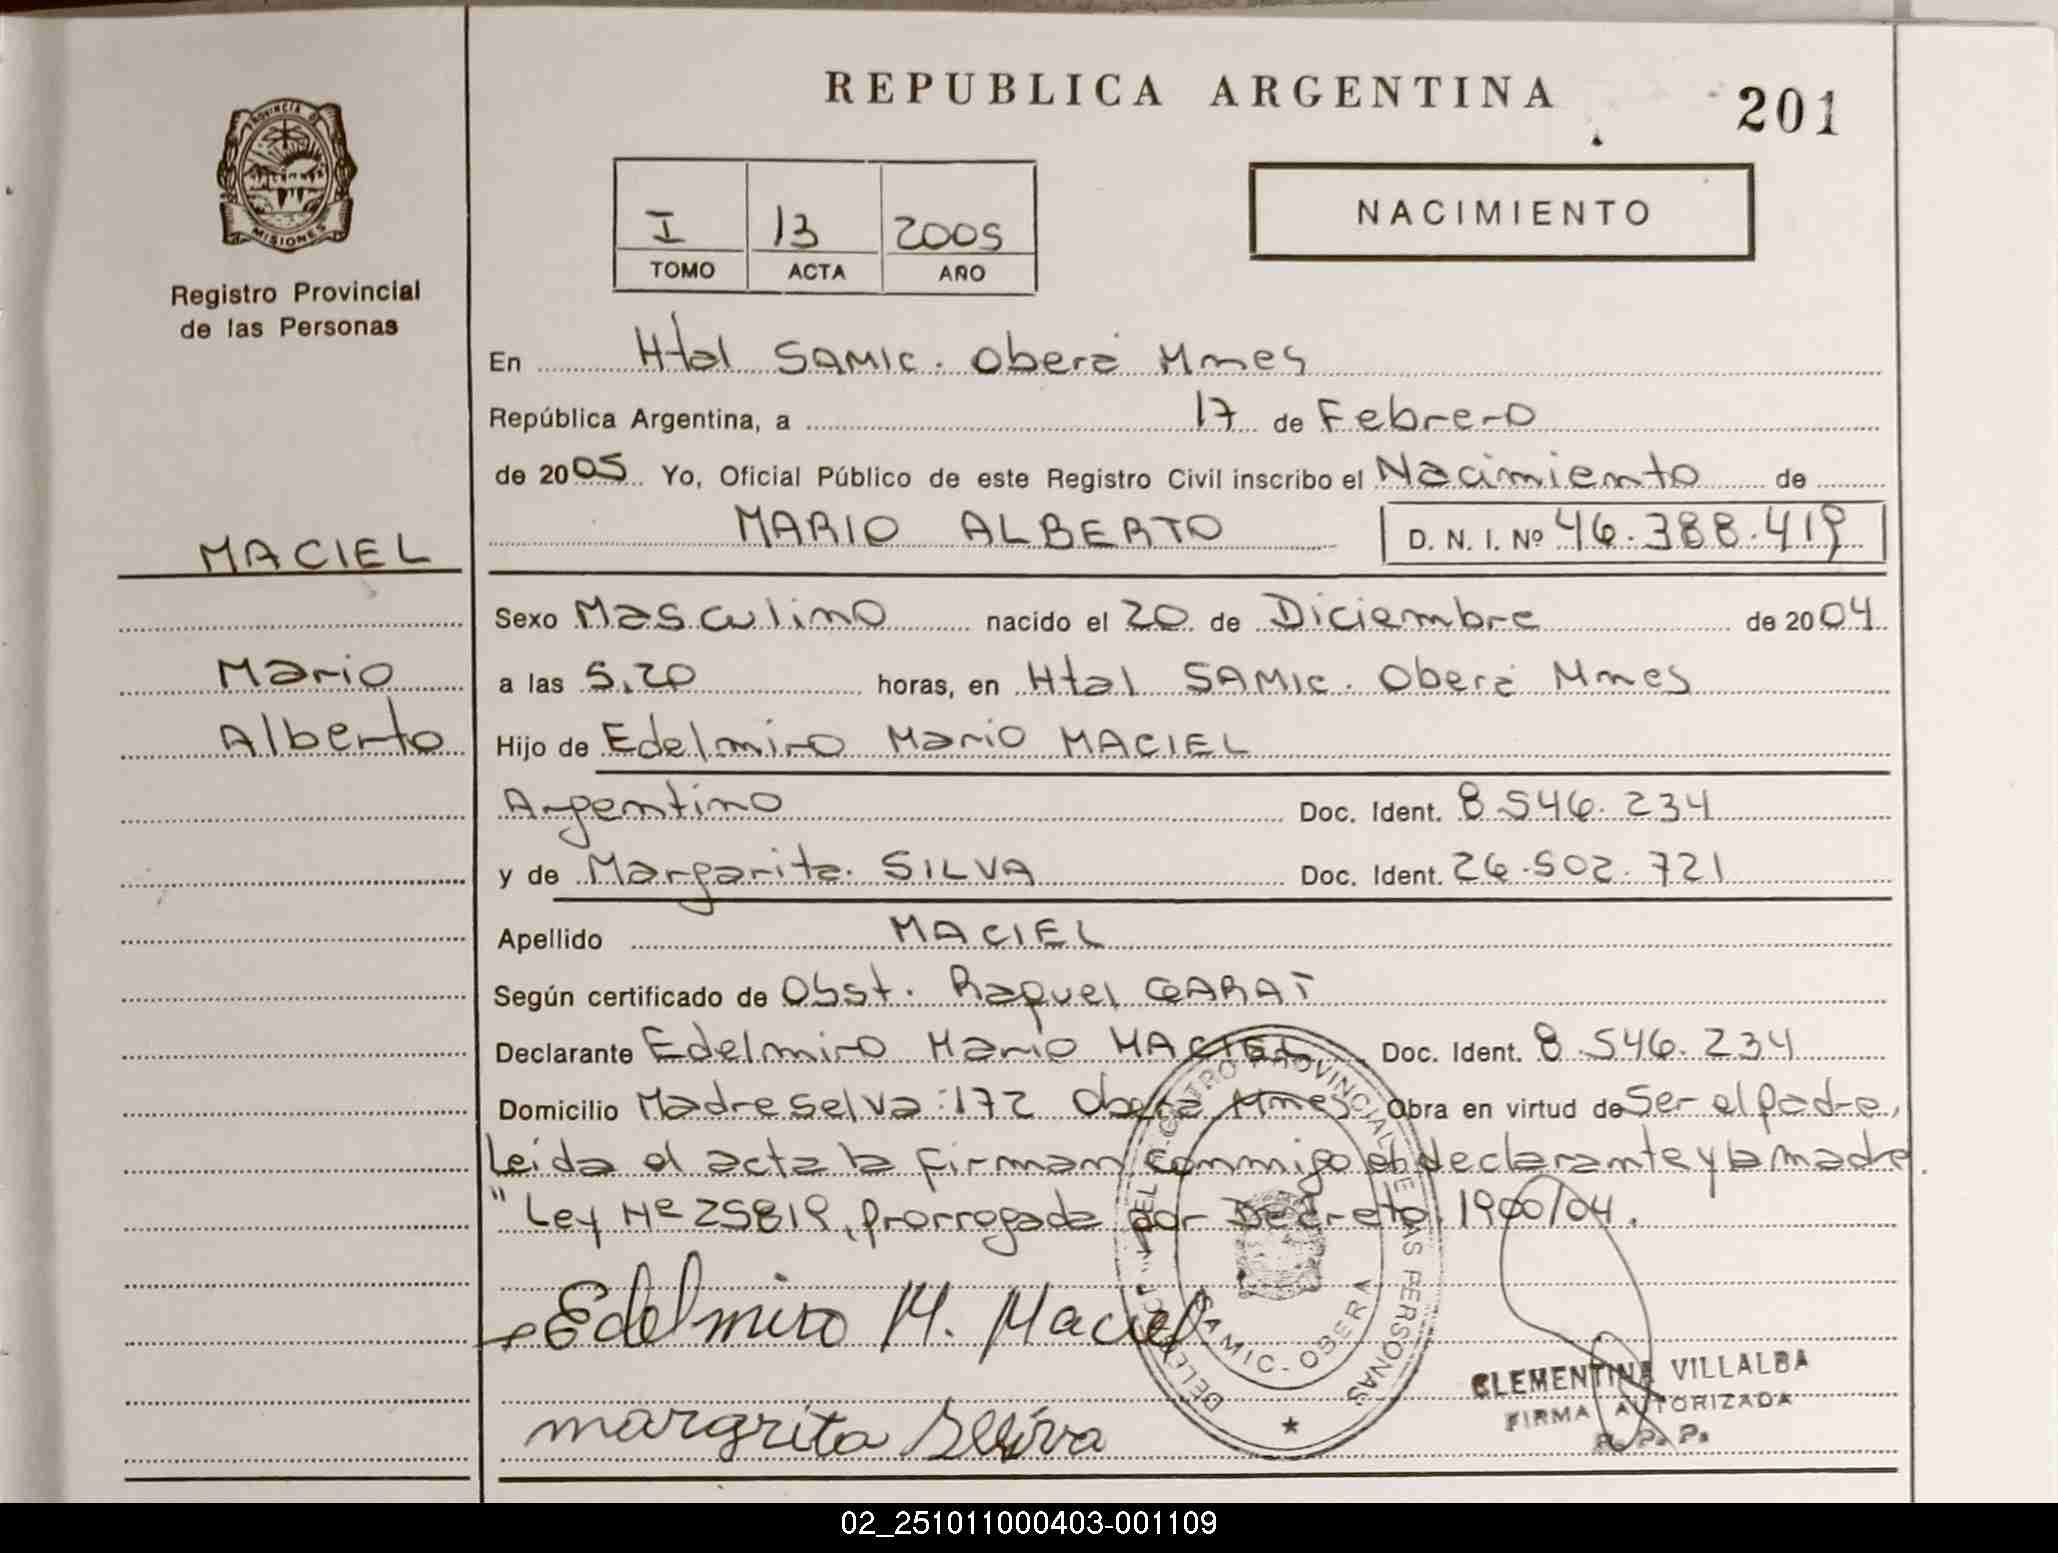 REPUBLICA ARGENTINA
201
PROVINCIA DE
MISIONES
Registro Provincial
de las Personas
I 13 2005
TOMO ACTA AÑO
NACIMIENTO
En Htal SAMIC. Oberá Mnes
República Argentina, a 17 de Febrero
de 2005 Yo, Oficial Público de este Registro Civil inscribo el Nacimiento de
MARIO ALBERTO D. N. I. Nº 46.388.419
MACIEL
Mario
Alberto
Sexo Masculino nacido el 20 de Diciembre de 2004
a las 5,20 horas, en Htal SAMIC. Oberá Mnes
Hijo de Edelmiro Mario MACIEL
Argentino Doc. Ident. 8.546.234
y de Margarita SILVA Doc. Ident. 26.502.721
Apellido MACIEL
Según certificado de Obst. Raquel GARAT
Declarante Edelmiro Mario MACIEL Doc. Ident. 8.546.234
Domicilio Madreselva 172 Oberá Mnes Obra en virtud de Ser el padre,
Leída el acta la firman conmigo el declarante y la madre.
"Ley Nº 25819, prorrogada por Decreto 1900/04.
Edelmiro M. Maciel
margrita Sílva
PROVINCIAL DE LAS PERSONAS
SAMIC - OBERA
CLEMENTINA VILLALBA
FIRMA AUTORIZADA
R. P. P.
02_251011000403-001109